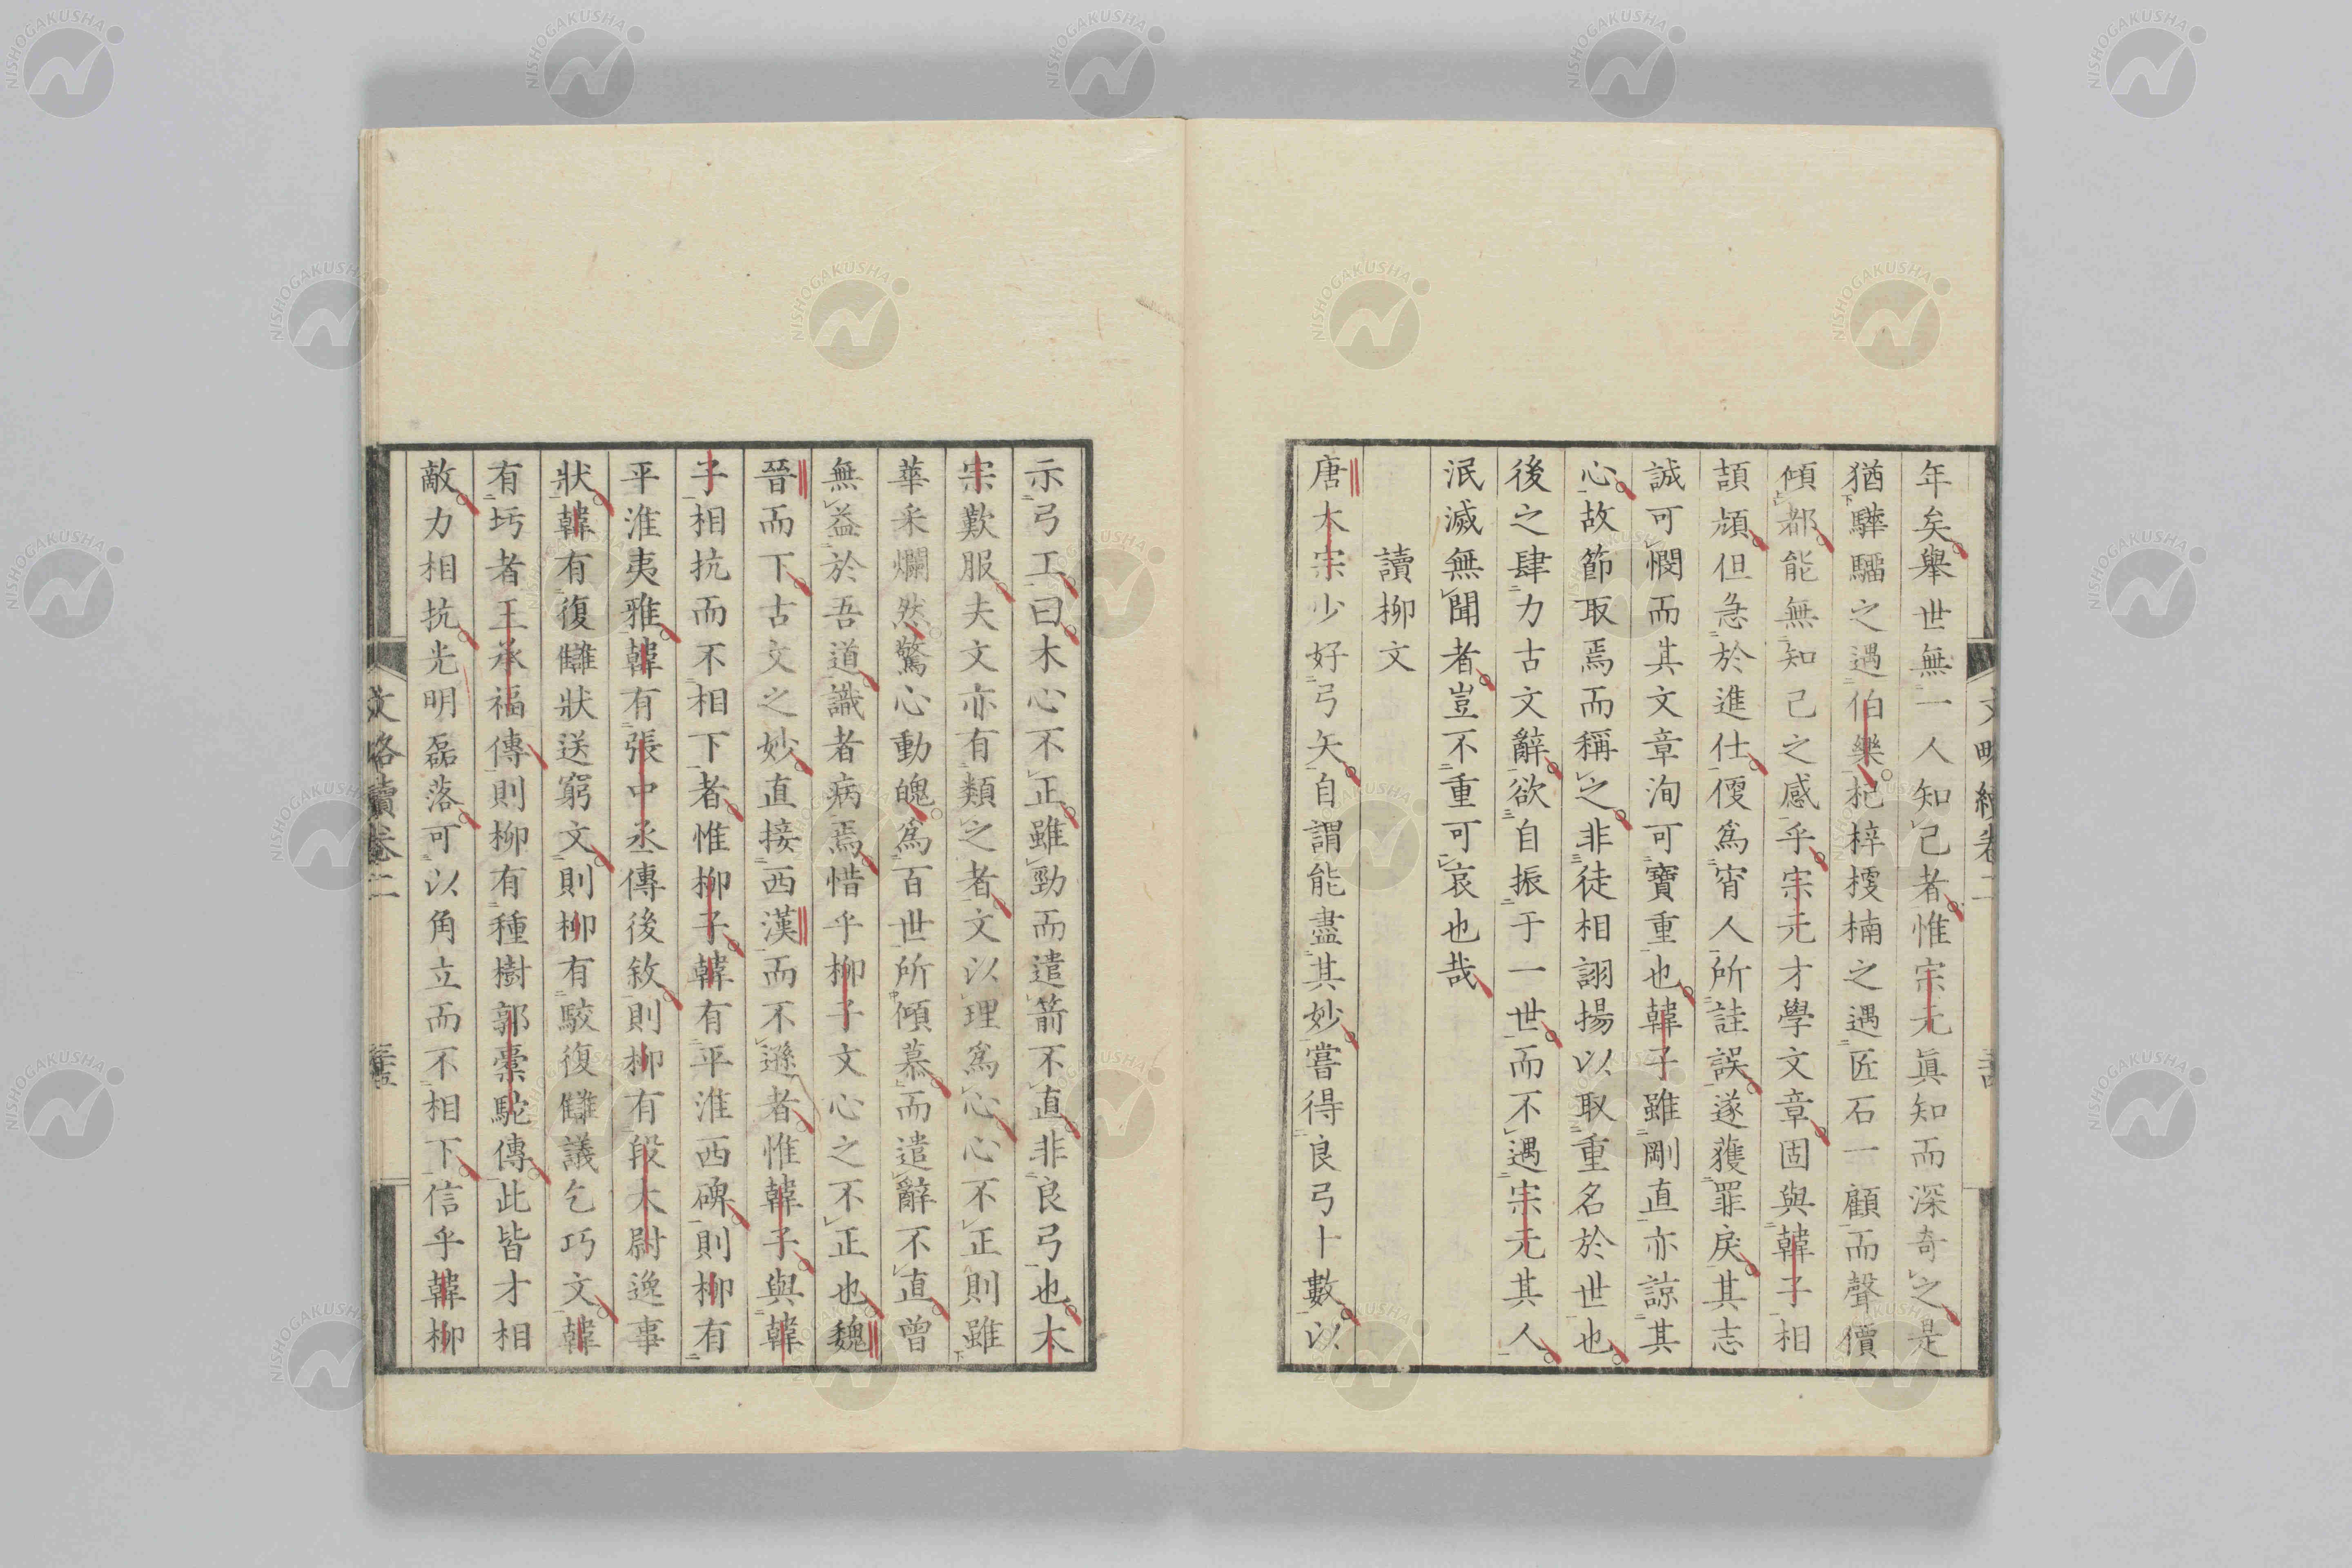 年矣舉世無一人知己者惟宗元眞知而深奇之是
猶驊騮之遇伯樂杞梓楩楠之遇匠石一顧而聲價
傾都能無知己之感乎宗元才學文章固與韓子相
頡頏但急於進仕便爲宵人所詿誤遂獲罪戾其志
誠可憫而其文章洵可寶重也韓子雖剛直亦諒其
心故節取焉而稱之非徒相詡揚以取重名於世也
後之肆力古文辭欲自振于一世而不遇宗元其人
泯滅無聞者豈不重可哀也哉
讀柳文
唐太宗少好弓矢自謂能盡其妙嘗得良弓十數以
示弓工曰木心不正雖勁而遣箭不直非良弓也太
宗歎服夫文亦有類之者文以理爲心心不正則雖
華采爛然驚心動魄爲百世所傾慕而遣辭不直曾
無益於吾道識者病焉惜乎柳子文心之不正也魏
晉而下古文之妙直接西漢而不遜者惟韓子與韓
子相抗而不相下者惟柳子韓有平淮西碑則柳有
平淮夷雅韓有張中丞傳後敘則柳有段太尉逸事
狀韓有復讎狀送窮文則柳有駁復讎議乞巧文韓
有圬者王承福傳則柳有種樹郭橐駝傳此皆才相
敵力相抗光明磊落可以角立而不相下信乎韓柳
文略續卷二
NISHOGAKUSHA